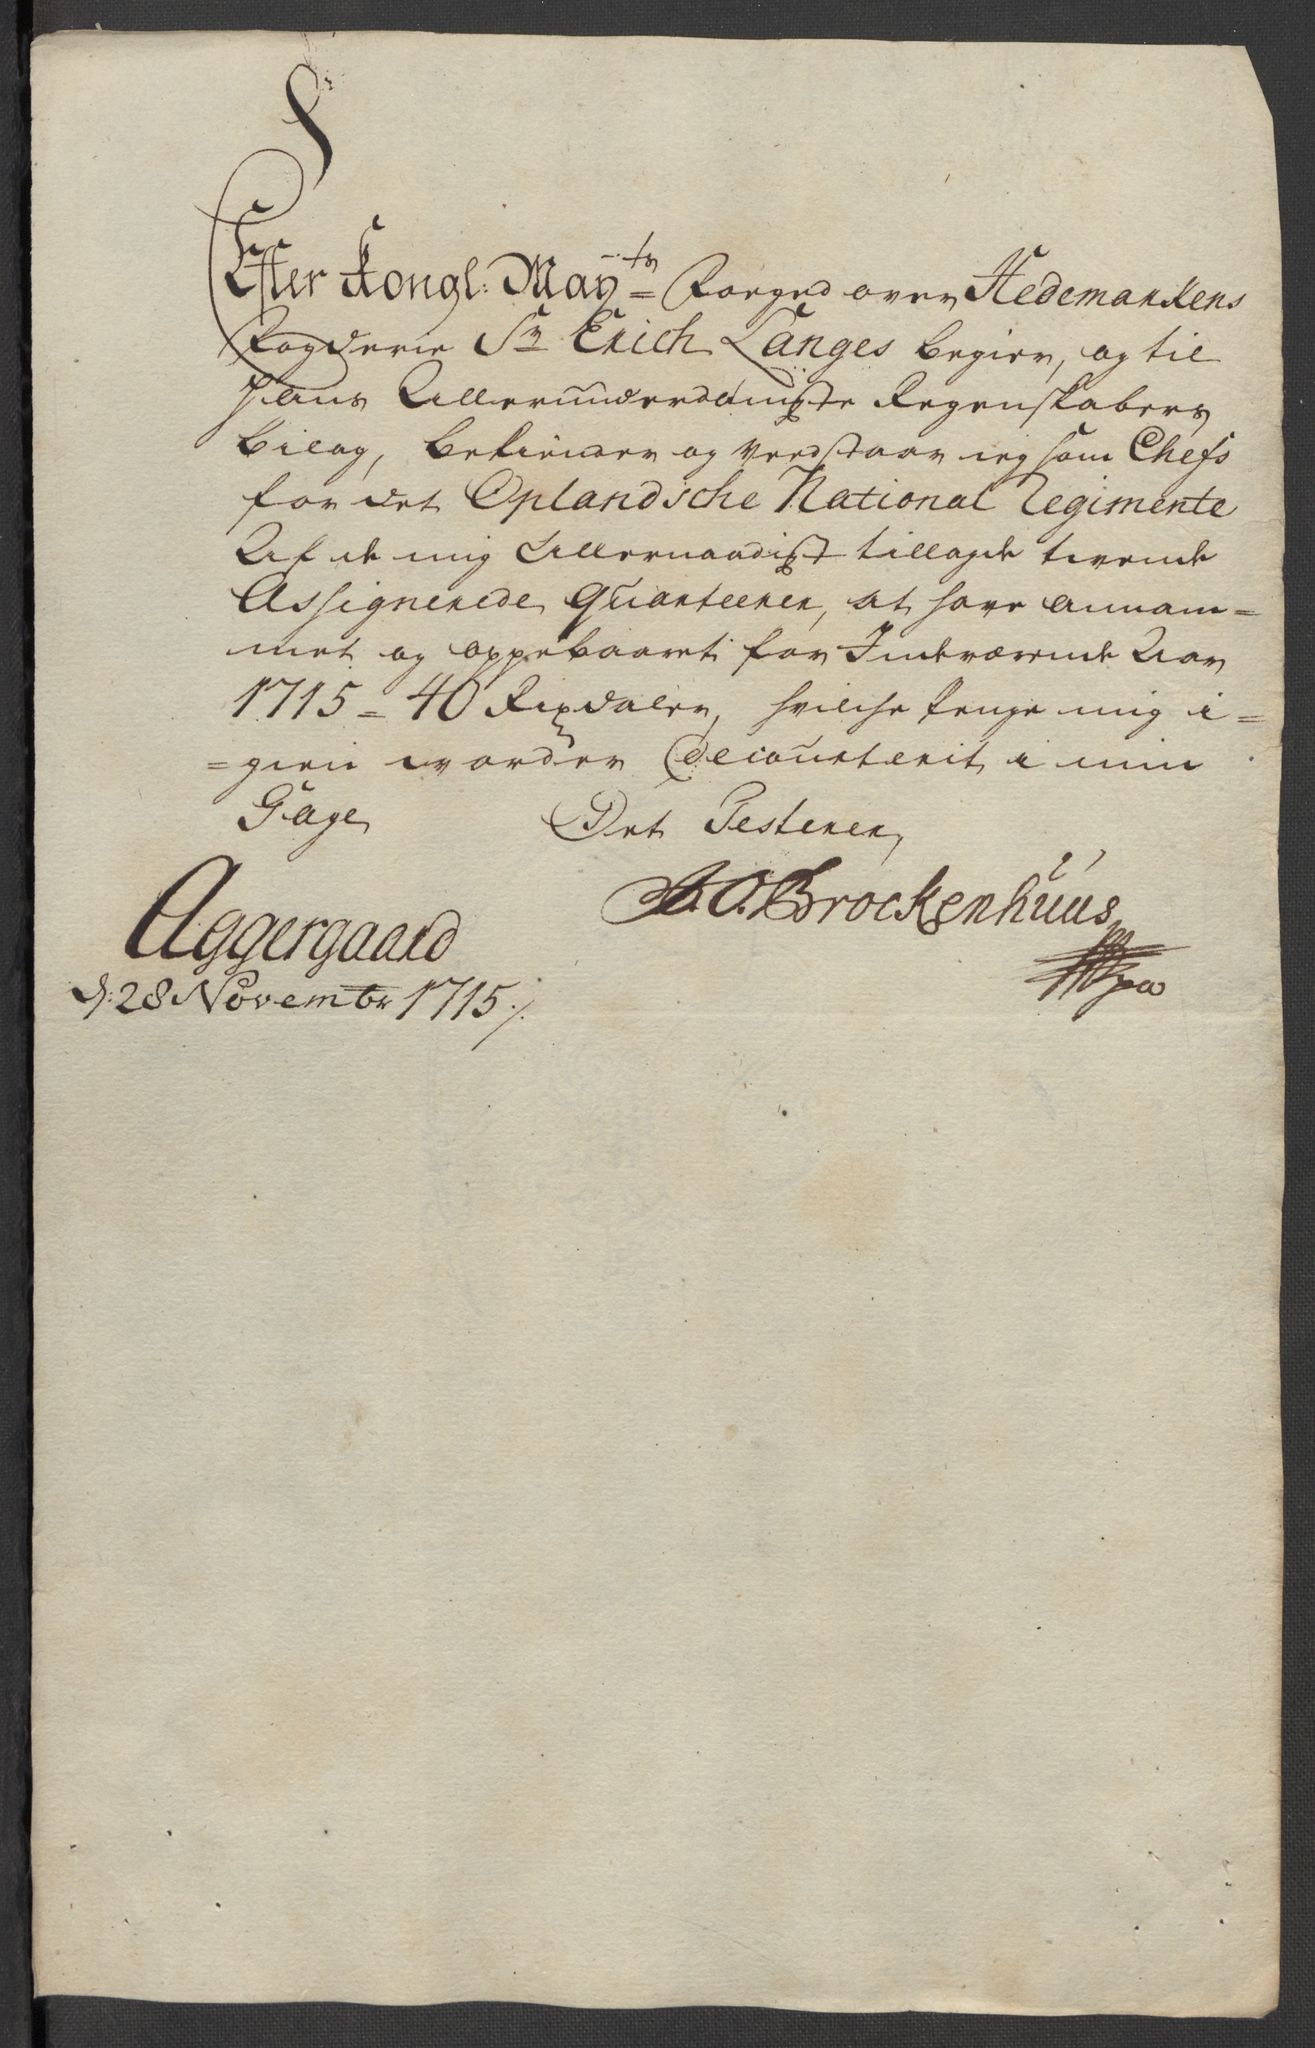 Efter Kongl: May:ts Foeged over Hedemarkens
Fogderie Sr Erich Langes begier, og til
hans Allerunderdanigste Regenskabers
bilag, bekiender og vedstaar ieg som Chefs
for det Oplandsche National Regimente
Af de mig Allernaadigst tillagde tvende
Assignerede Quarteerer, at have annam=
met og oppebaaret for Indeværende Aar
1715 = 40 Rixdaler, hvilche penge mig i=
=gien worder decourterit i min
Gage Det Testerer,
Aggergaard
d: 28 Novembr 1715 ./.
Brockenhuus